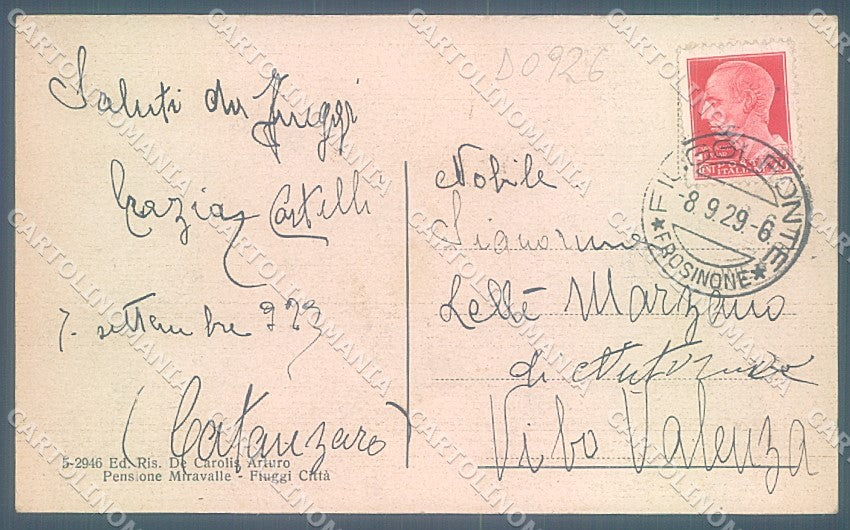 D0926
Saluti da Fiuggi
Grazia Castelli
7- settembre 929
(Catanzaro)
5-2946 Ed. Ris. De Carolis Arturo
Pensione Miravalle - Fiuggi Città
Nobile
Signorina
Lellè Marzano
di
Vibo Valenza
FIUGGI FONTE
-8.9.29-6
★FROSINONE★
CARTOLINOMANIA